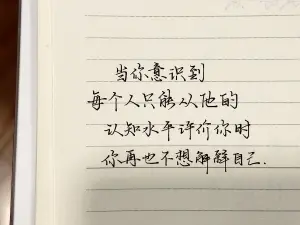 当你意识到
每个人只能从他的
认知水平评价你时
你再也不想解释自己.